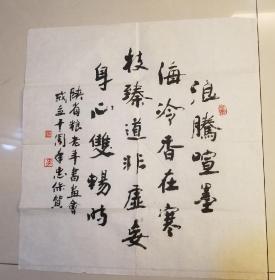 浪腾喧墨
海冷香在寒
枝臻道非虚妄
身心双畅時
陕省粮老年书画会
成立十周年忠保贺